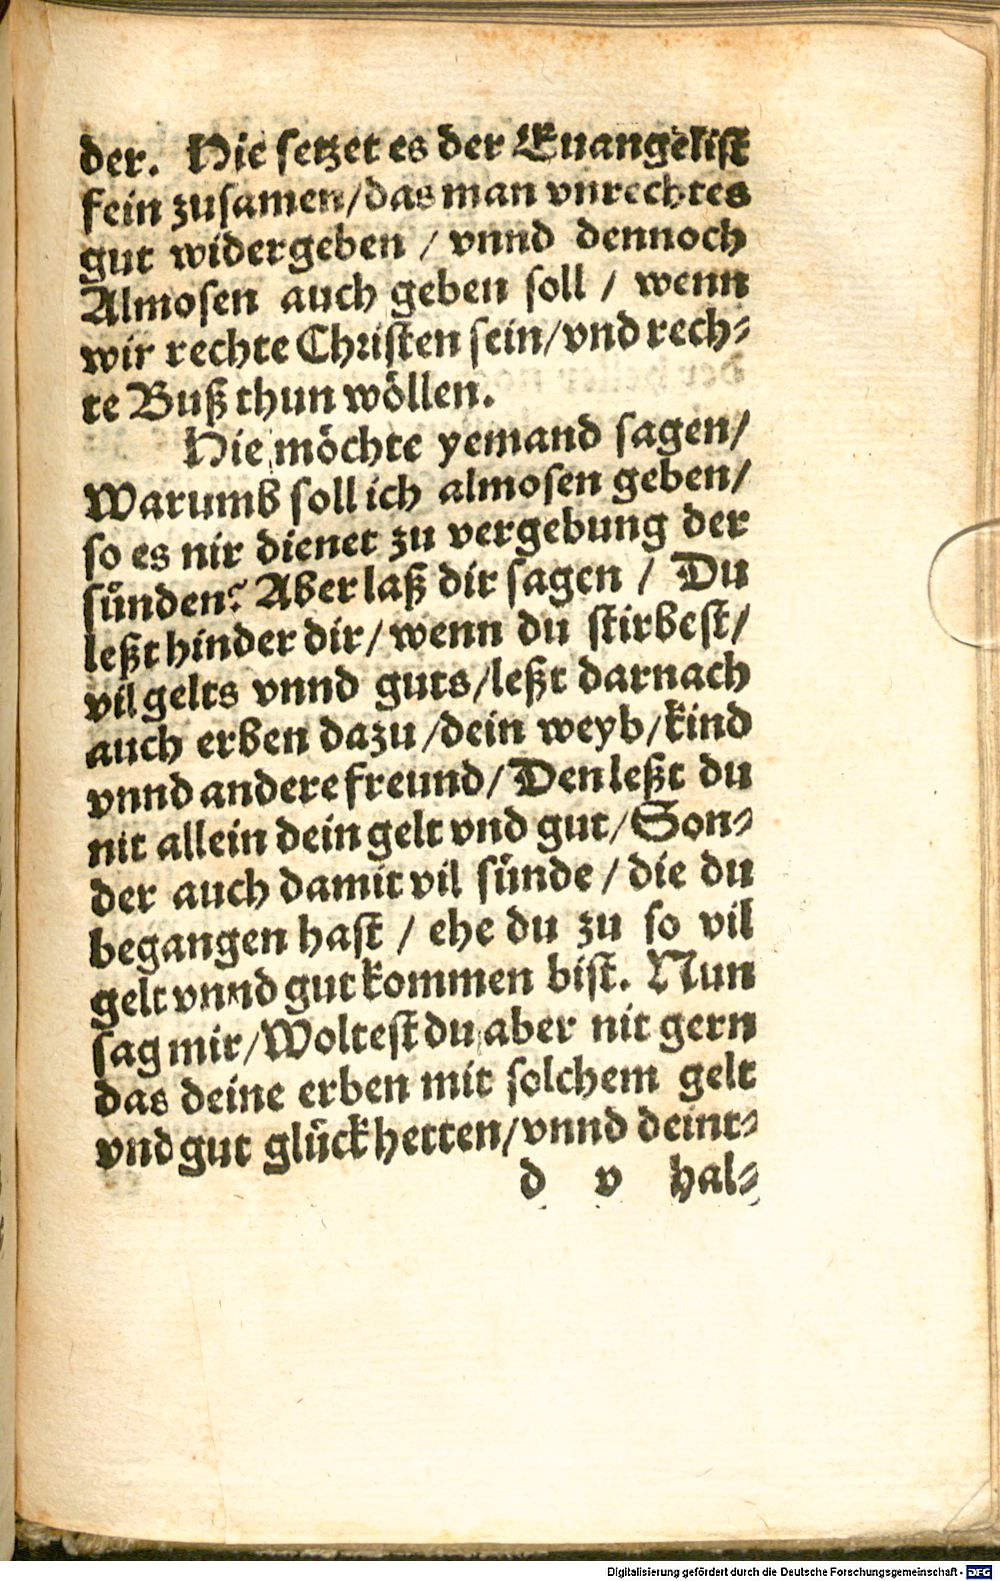 der. Hie setzet es der Euangelist
fein zusamen/das man vnrechtes
gut widergeben / vnnd dennoch
Almosen auch geben soll / wenn
wir rechte Christen sein/vnd rech-
te Buß thun wöllen.
Hie möchte yemand sagen/
Warumb soll ich almosen geben/
so es nir dienet zu vergebung der
sünden? Aber laß dir sagen / Du
leßt hinder dir/wenn du stirbest/
vil gelts vnnd guts/leßt darnach
auch erben dazu/dein weyb/kind
vnnd andere freund/Den leßt du
nit allein dein gelt vnd gut/Son-
der auch damit vil sünde / die du
begangen hast / ehe du zu so vil
gelt vnnd gut kommen bist. Nun
sag mir/Woltest du aber nit gern
das deine erben mit solchem gelt
vnd gut glück hetten/vnnd deint-
d v hal-
Digitalisierung gefördert durch die Deutsche Forschungsgemeinschaft - DFG